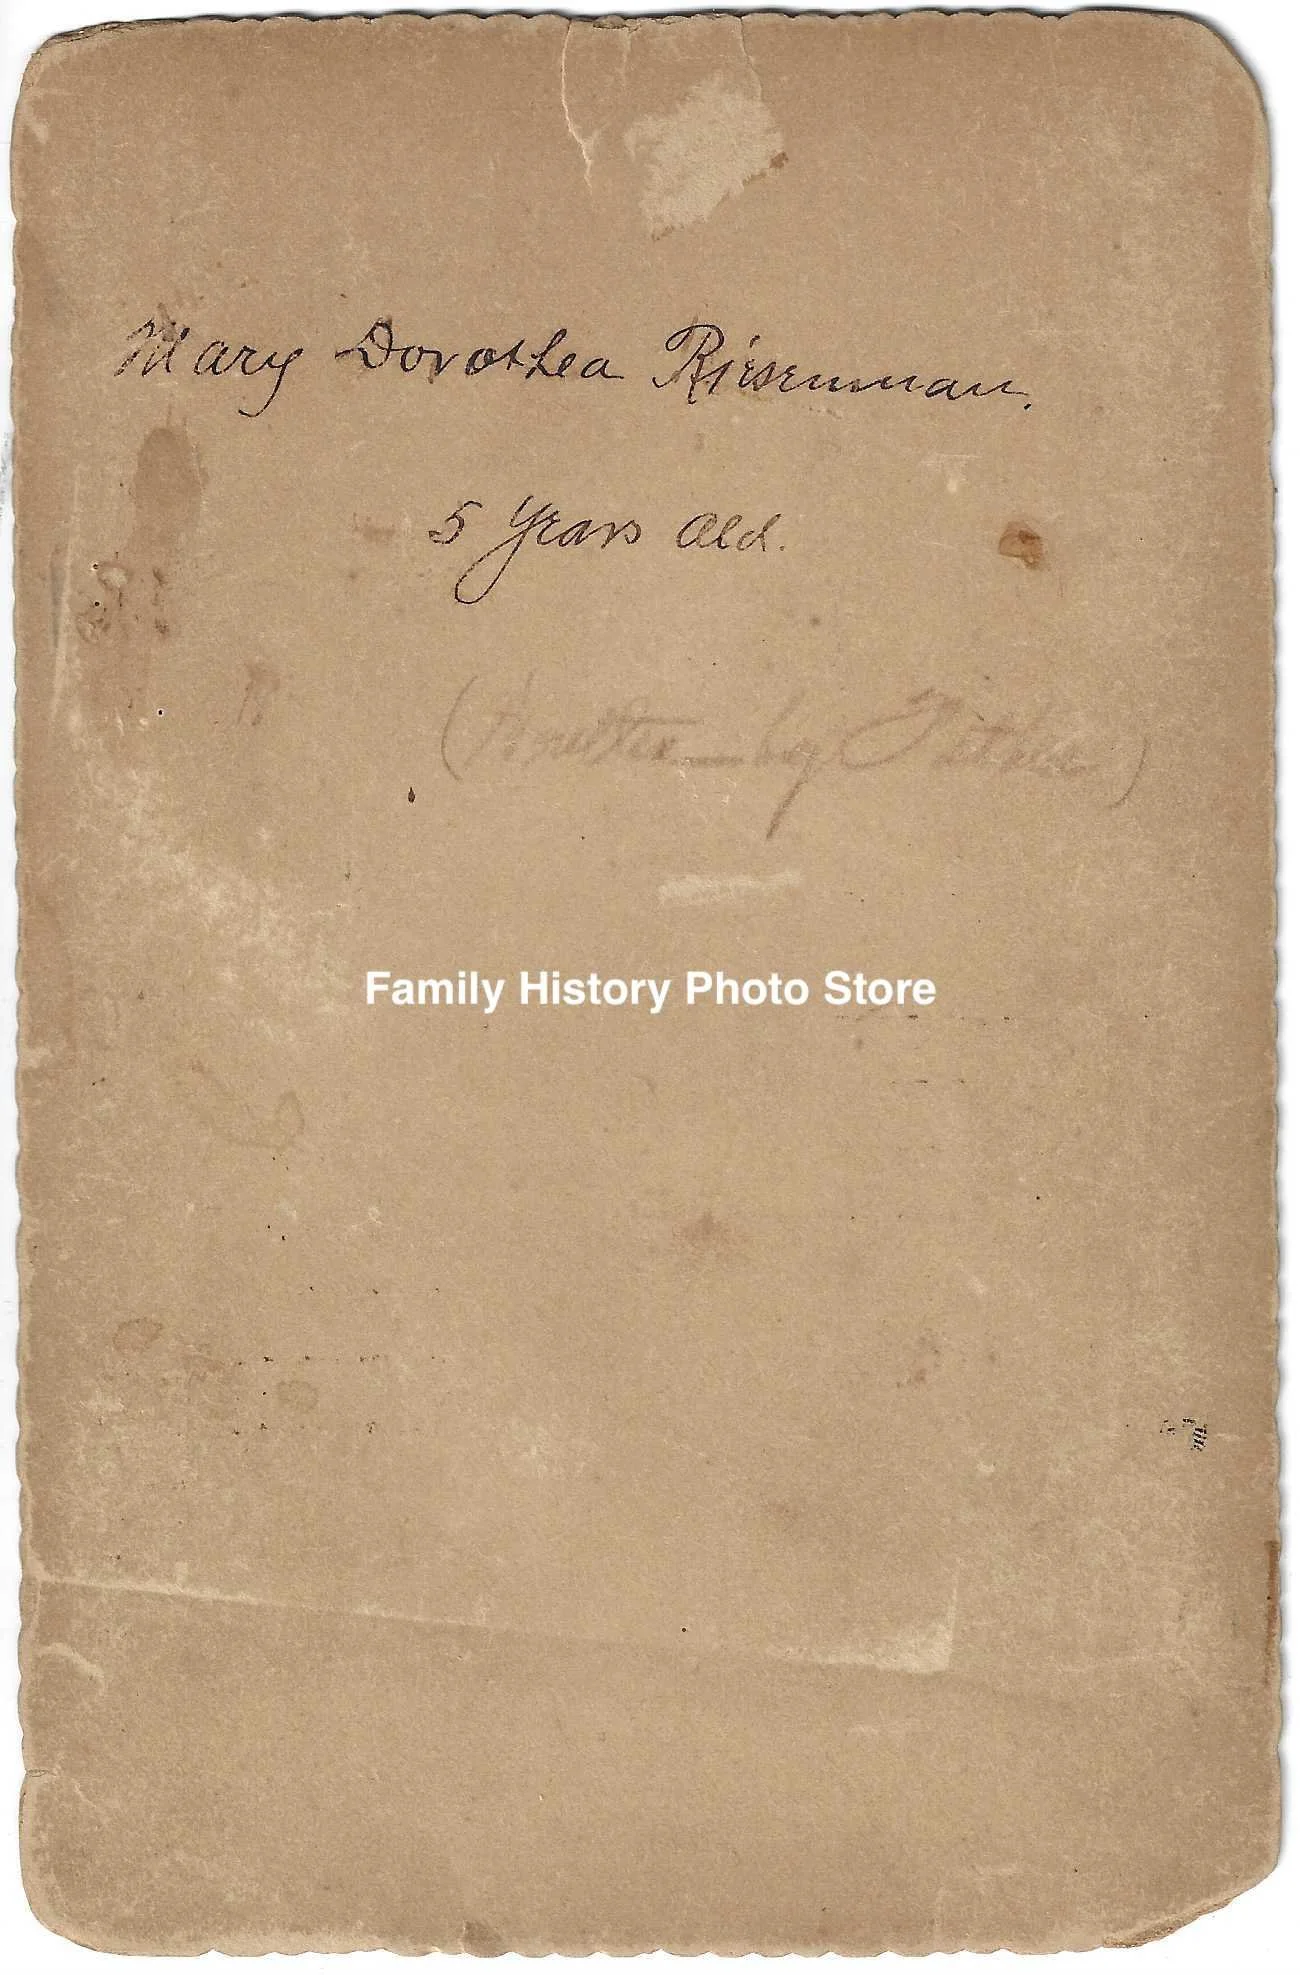 Mary Dorothea Riesenman.
5 Years Old.
(Written by Father)
Family History Photo Store